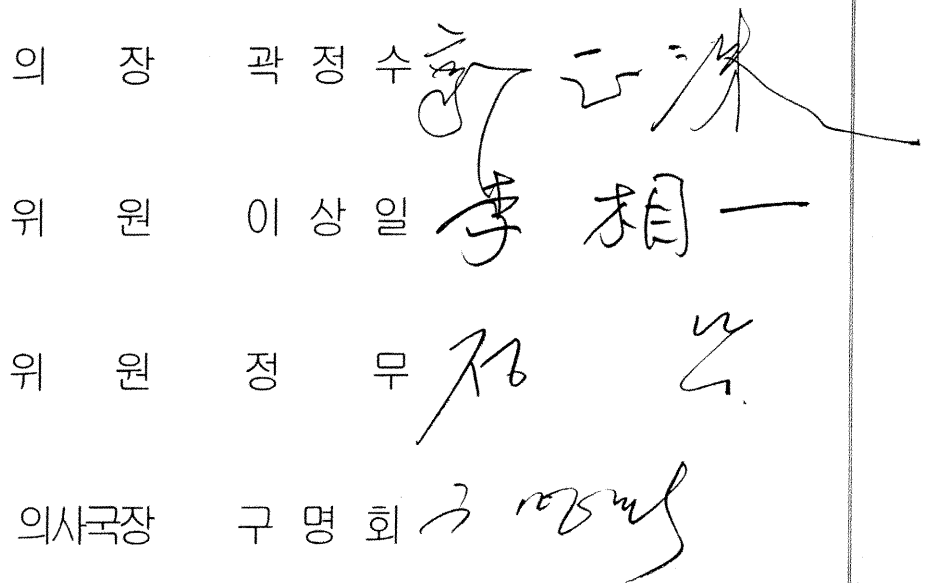 의 장 곽 정 수 郭 正 洙
위 원 이 상 일 李 相 一
위 원 정 무
의사국장 구 명 회